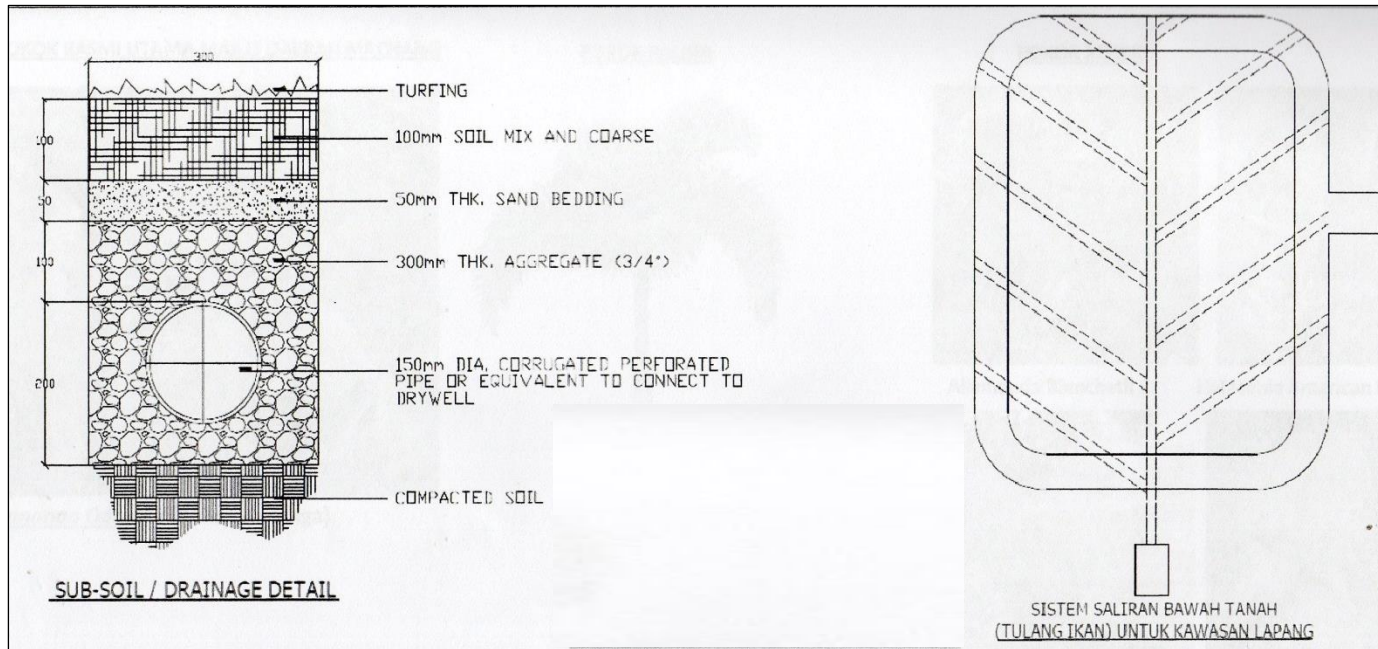 300
TURFING
100
100mm SOIL MIX AND COARSE
50
50mm THK. SAND BEDDING
100
300mm THK. AGGREGATE (3/4")
200
150mm DIA. CORRUGATED PERFORATED
PIPE OR EQUIVALENT TO CONNECT TO
DRYWELL
COMPACTED SOIL
SUB-SOIL / DRAINAGE DETAIL
SISTEM SALIRAN BAWAH TANAH
(TULANG IKAN) UNTUK KAWASAN LAPANG